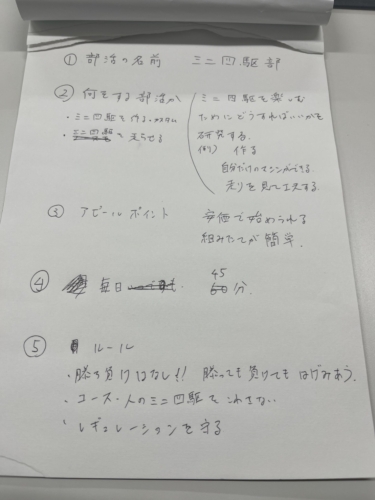 ① 部活の名前　ミニ四駆部
② 何をする部活か
・ミニ四駆を作る.
・ミニ四駆を走らせる
ミニ四駆を楽しむ
ためにどうすればいいかを
研究する.
例) 作る
自分だけのマシンができる.
走りを見て工夫する.
③ アピールポイント　安価で始められる
組みたてが簡単.
④ 毎日　45
60分.
⑤ ルール
・勝ち負けはなし!! 勝っても負けてもはげみあう.
・コース・人のミニ四駆をこわさない
・レギュレーションを守る